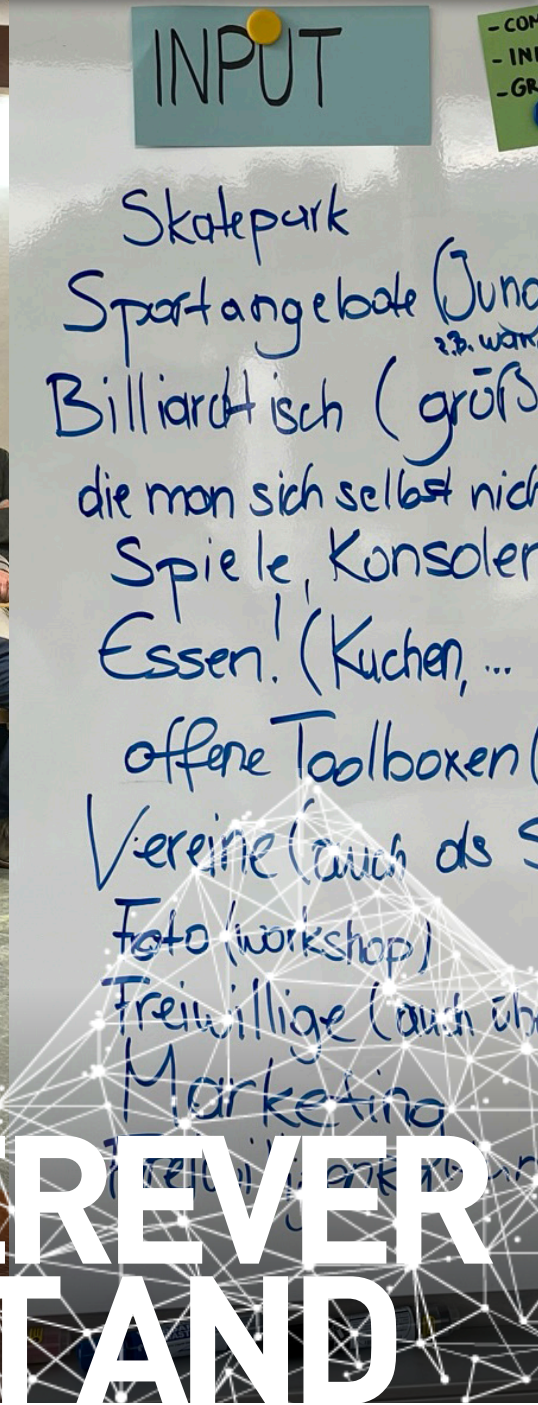 INPUT
- COM
- INI
- GR
Skatepark
Sportangebote (Jung
z.B. work
Billiardtisch (größ
die man sich selbst nich
Spiele, Konsolen
Essen! (Kuchen, ...
offene Toolboxen (
Vereine (auch als S
Foto (workshop)
Freiwillige (auch üb
Marketing
EREVER
T AND